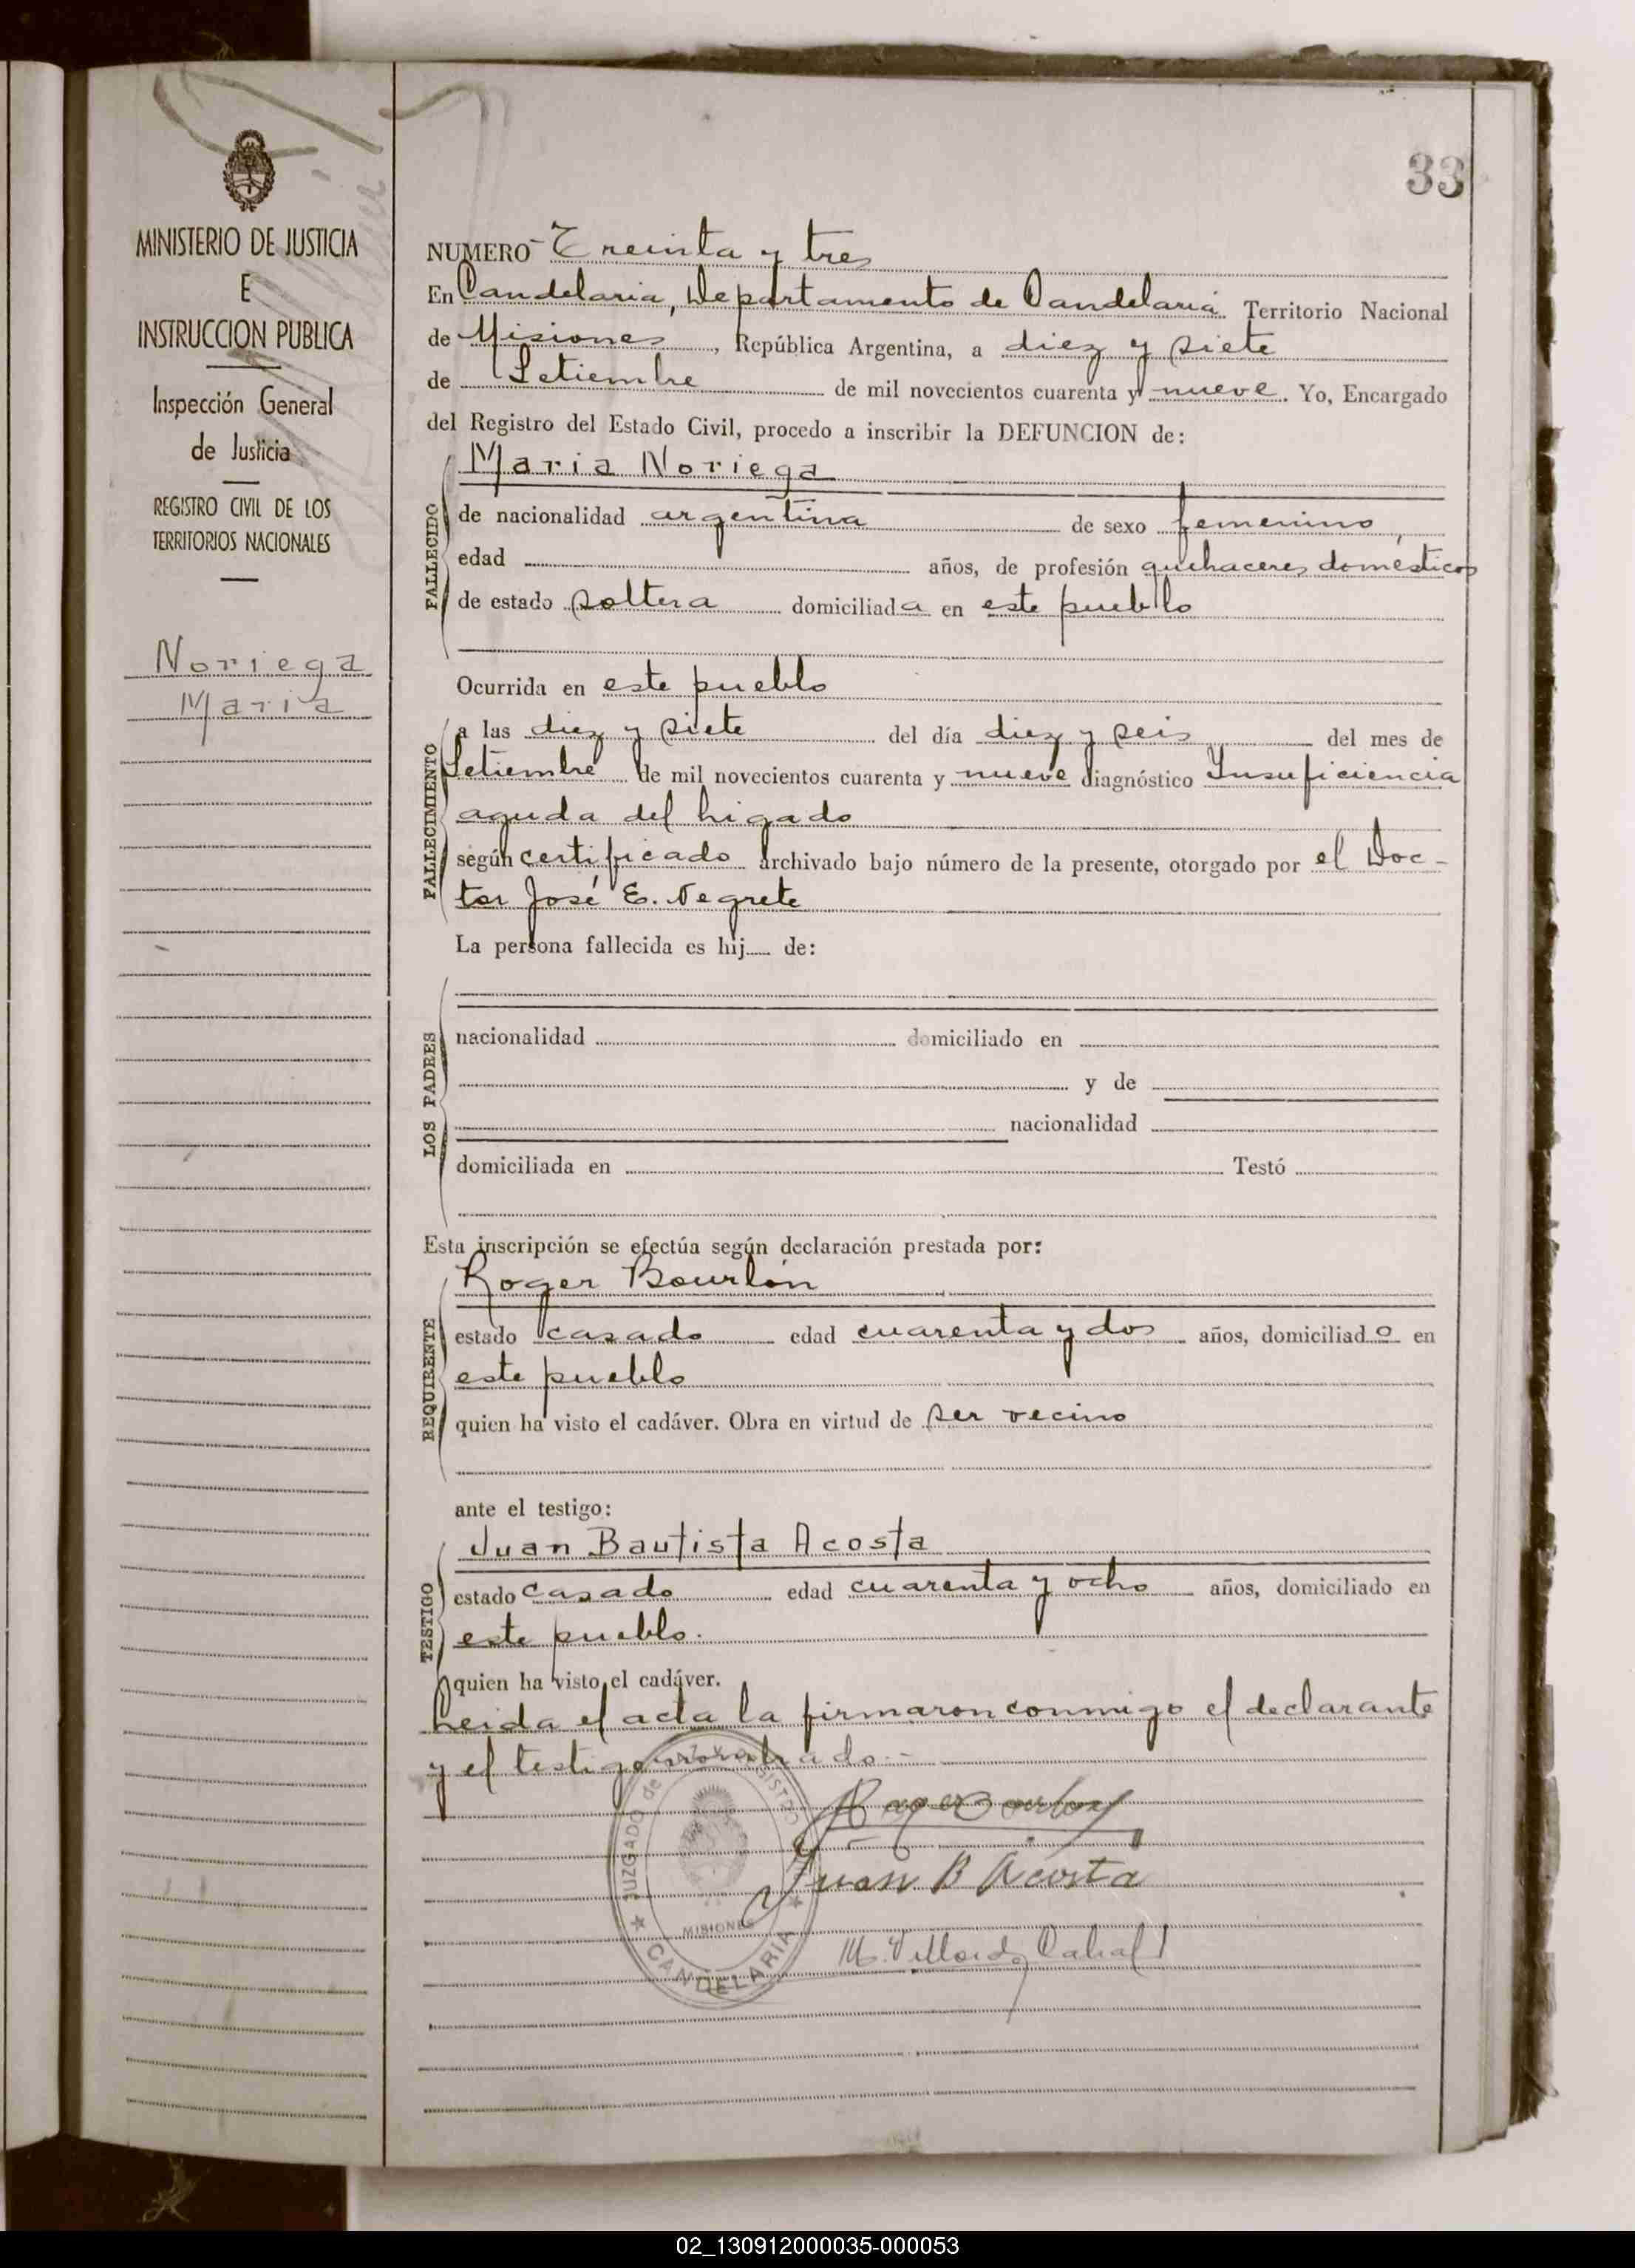 33
MINISTERIO DE JUSTICIA
E
INSTRUCCION PUBLICA
Inspección General
de Justicia
REGISTRO CIVIL DE LOS
TERRITORIOS NACIONALES
Noriega
Maria
NUMERO Treinta y tres
En Candelaria, Departamento de Candelaria Territorio Nacional
de Misiones, República Argentina, a diez y siete
de Setiembre de mil novecientos cuarenta y nueve. Yo, Encargado
del Registro del Estado Civil, procedo a inscribir la DEFUNCION de:
FALLECIDO
Maria Noriega
de nacionalidad argentina de sexo femenino
edad años, de profesión quehaceres domésticos
de estado soltera domiciliada en este pueblo
Ocurrida en este pueblo
FALLECIMIENTO
a las diez y siete del día diez y seis del mes de
Setiembre de mil novecientos cuarenta y nueve diagnóstico Insuficiencia
aguda del higado
según certificado archivado bajo número de la presente, otorgado por el Doc-
tor José E. Negrete
La persona fallecida es hij de:
LOS PADRES
nacionalidad domiciliado en
y de
nacionalidad
domiciliada en Testó
Esta inscripción se efectúa según declaración prestada por:
REQUIRENTE
Roger Bourlon
estado casado edad cuarenta y dos años, domiciliado en
este pueblo
quien ha visto el cadáver. Obra en virtud de ser vecino
ante el testigo:
TESTIGO
Juan Bautista Acosta
estado casado edad cuarenta y ocho años, domiciliado en
este pueblo.
quien ha visto el cadáver.
Leida el acta la firmaron conmigo el declarante
y el testigo nombrado.-
JUZGADO de
MISIONES
CANDELARIA
Juan B Acosta
02_130912000035-000053